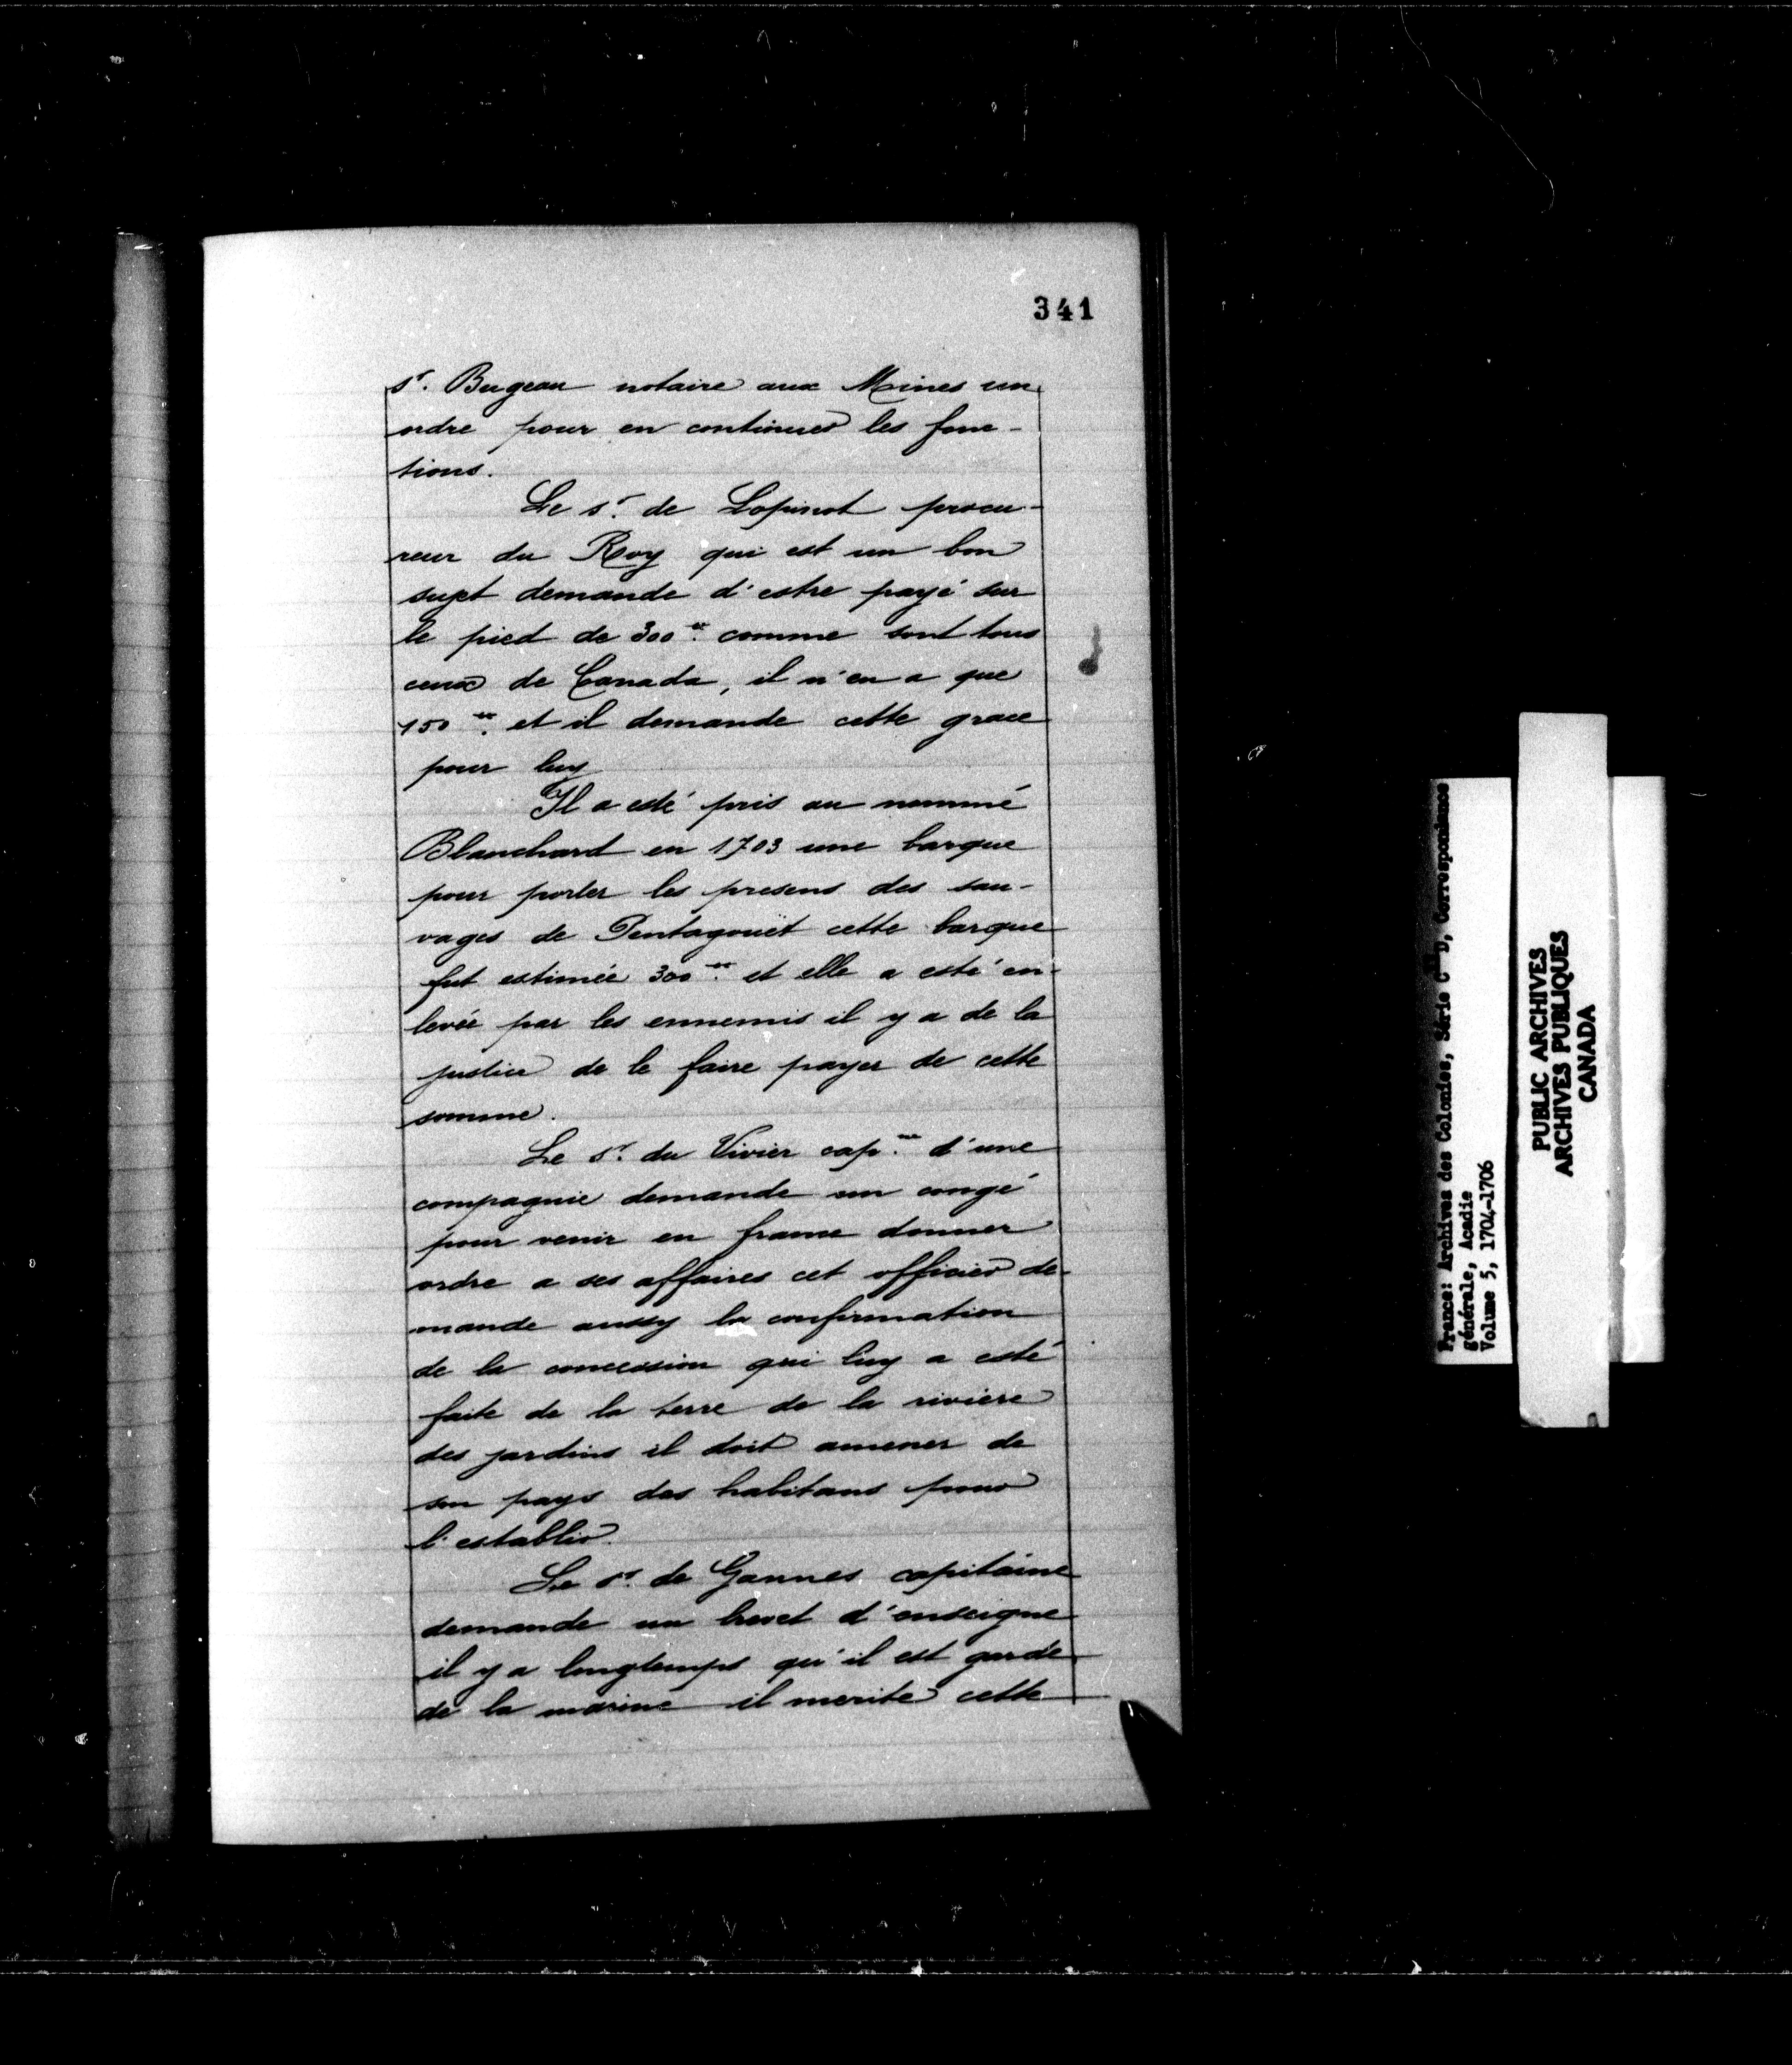 341
sr. Bugeau notaire aux Mines un
ordre pour en continuer les fonc-
tions.
Le sr. de Lopinot procu-
reur du Roy qui est un bon
sujet demande d'estre payé sur
le pied de 300tt. comme sont tous
ceux de Canada, il n'en a que
150tt. et il demande cette grace
pour luy
Il a esté pris au nommé
Blanchard en 1703 une barque
pour porter les presens des sau-
vages de Pentagouët cette barque
fut estimée 300tt. et elle a esté en-
levée par les ennemis il y a de la
justice de le faire payer de cette
somme.
Le sr. du Vivier cap.ne d'une
compagnie demande un congé
pour venir en france donner
ordre a ses affaires cet officier de-
mande aussy la confirmation
de la concession qui luy a esté
faite de la terre de la riviere
des jardins il doit amener de
son pays des habitans pour
l'establir.
Le sr. de Gannes capitaine
demande un brevet d'enseigne
il y a longtemps qu'il est garde
de la marine il merite cette
France: Archives des Colonies, Série C11D, Correspondance
générale, Acadie
Volume 5, 1704-1706
PUBLIC ARCHIVES
ARCHIVES PUBLIQUES
CANADA